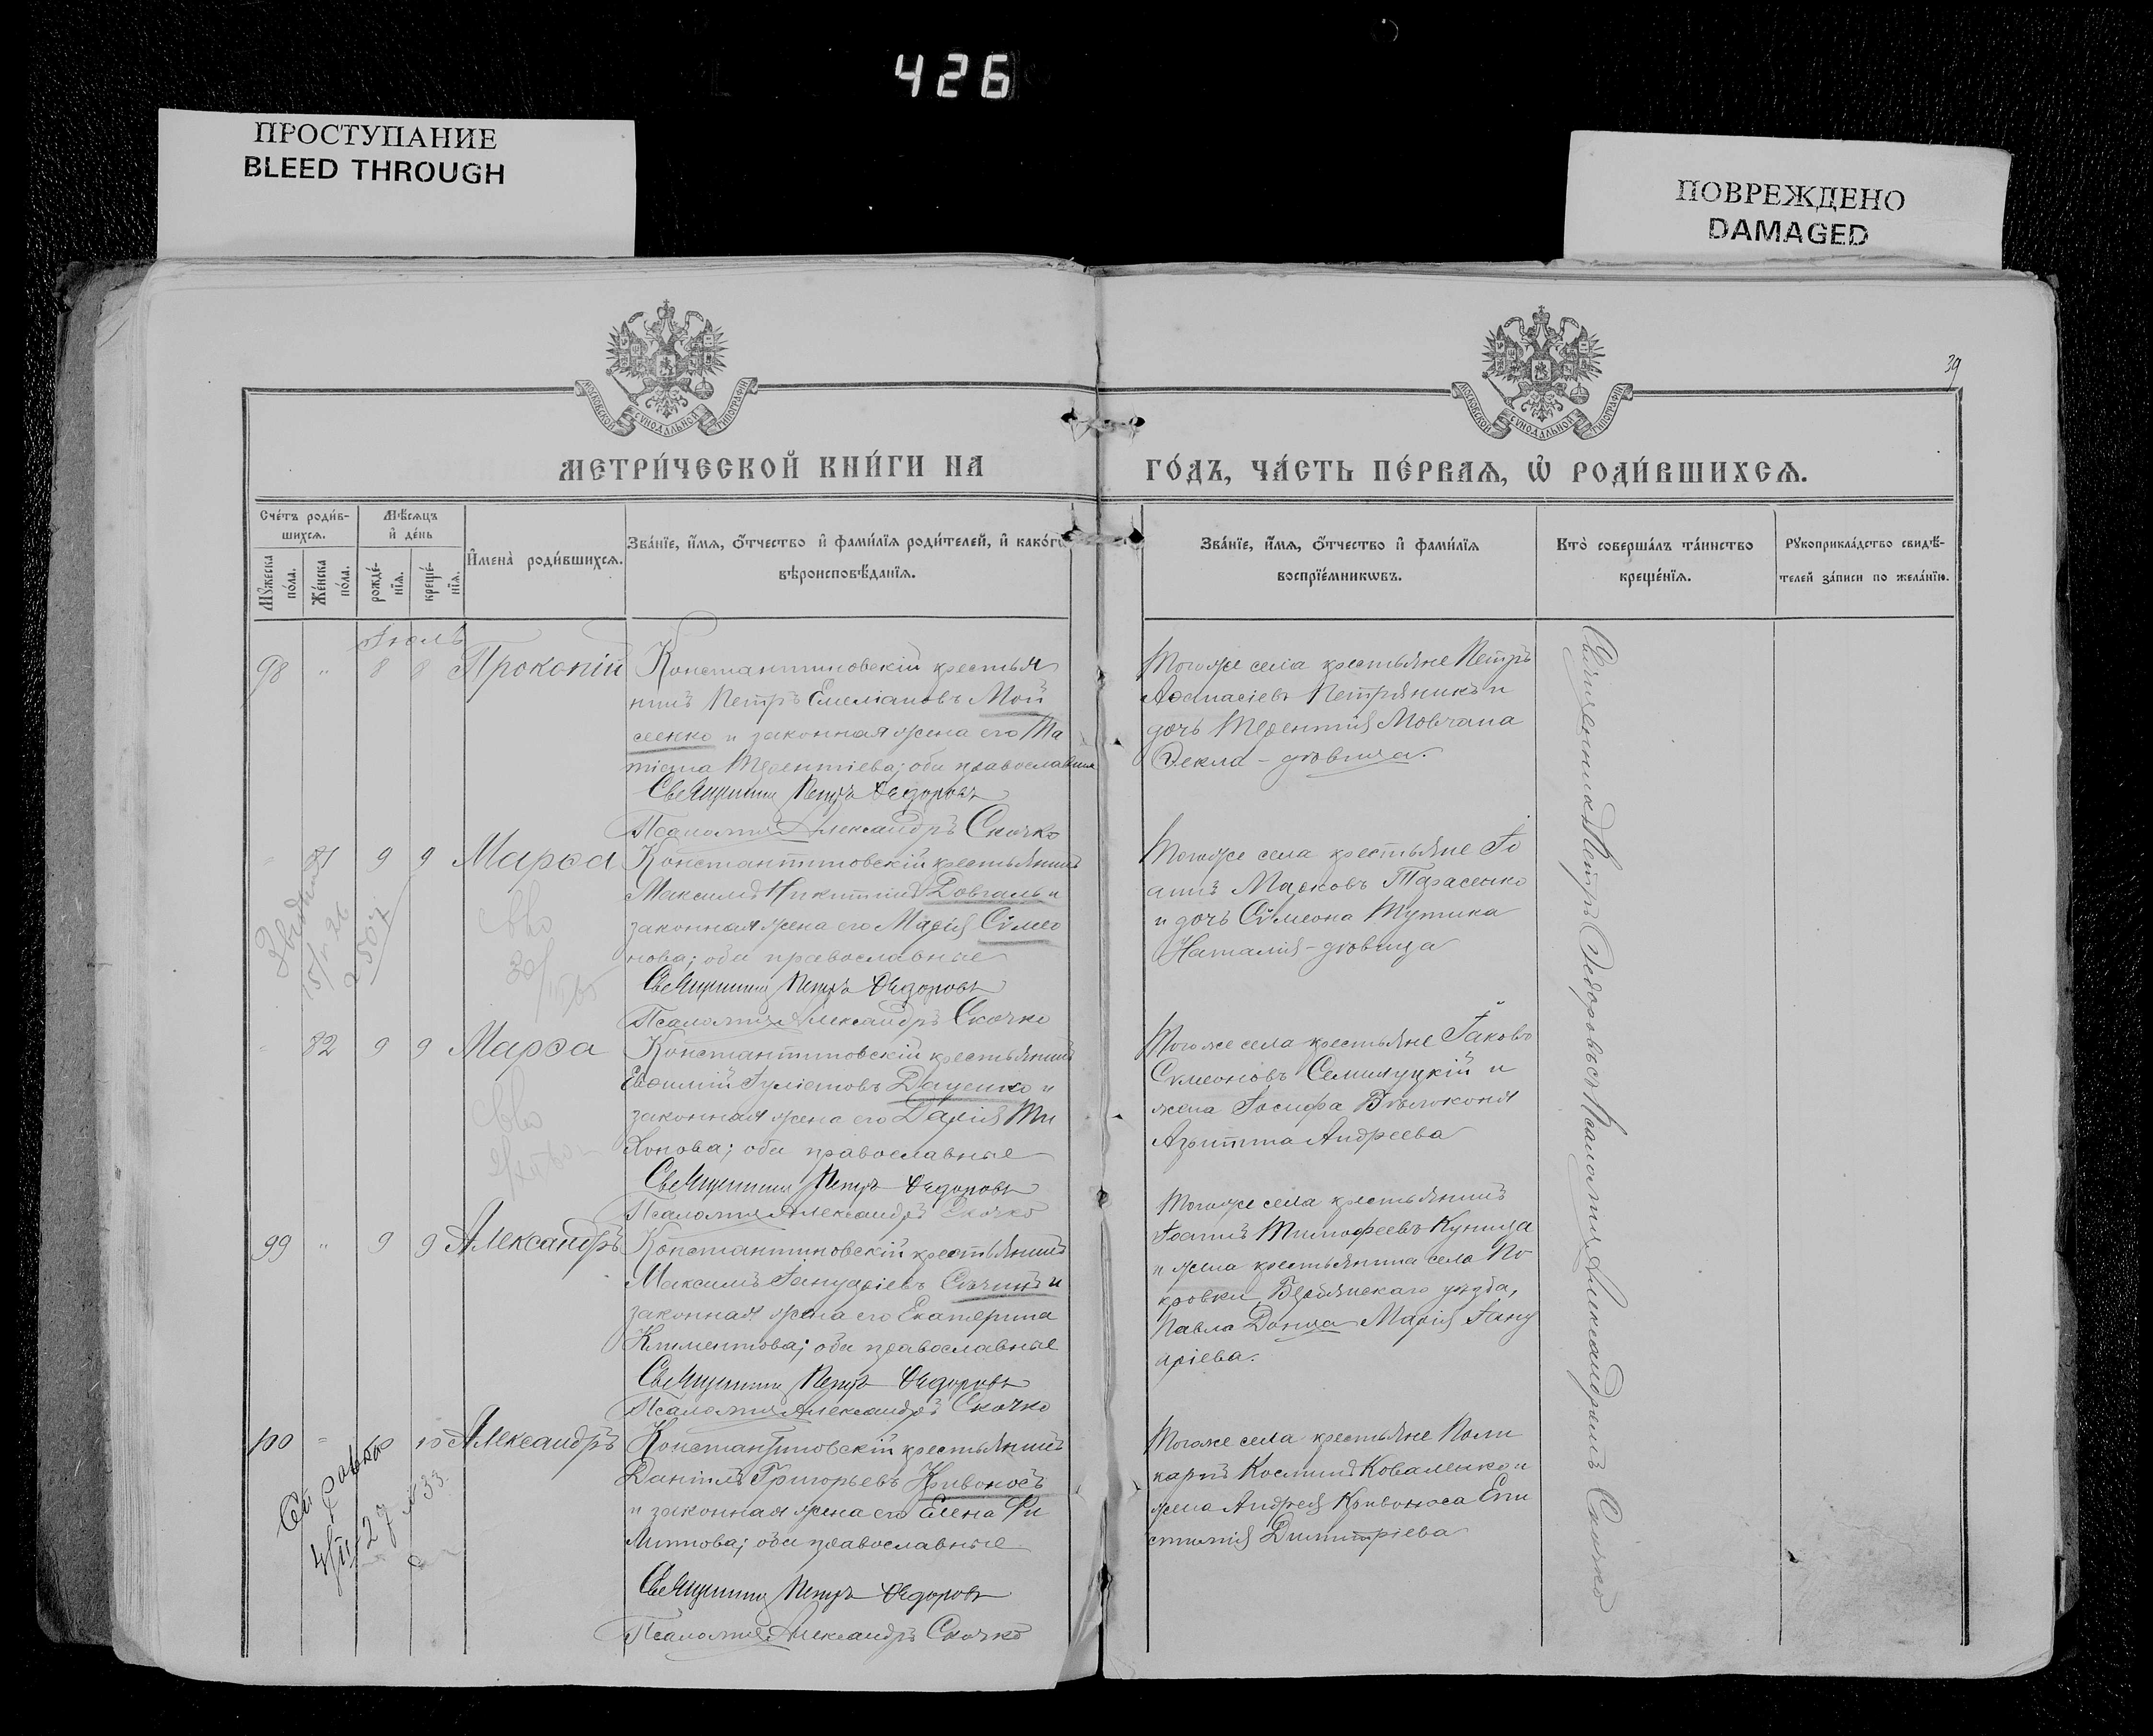 426
ПРОСТУПАНИЕ
BLEED THROUGH
ПОВРЕЖДЕНО
DAMAGED
39
МОСКОВСКОЙ СУНОДАЛЬНОЙ ТИПОГРАФІИ
МОСКОВСКОЙ СУНОДАЛЬНОЙ ТИПОГРАФІИ
МЕТРИ́ЧЕСКОЙ КНИ́ГИ НА
ГО́ДЪ, ЧА́СТЬ ПЕ́РВАѦ, Ѡ҆ РОДИ́ВШИХСѦ.
Сче́тъ роди́в-
шихсѧ.
Мꙋ́жеска по́ла.
Же́нска по́ла.
Мѣ́сѧцъ
и҆ де́нь
рожде́-
нїѧ.
креще́-
нїѧ.
И҆мена̀ роди́вшихсѧ.
Зва́нїе, и҆́мѧ, ѻ҆́тчество и҆ фами́лїѧ роди́телей, и҆ како́гѡ
вѣроисповѣ́данїѧ.
Зва́нїе, и҆́мѧ, ѻ҆́тчество и҆ фами́лїѧ
воспрїе́мникѡвъ.
Кто̀ соверша́лъ та́инство
креще́нїѧ.
Рꙋкоприкла́дство свидѣ́-
телей за́писи по жела́нїю.
Іюль
98 " 8 8 Прокопій
Константиновскій крестья
нинъ Петръ Емеліановъ Мой
сеенко и законная жена его Та
тіана Терентіева; оба православные
Священникъ Петръ Ѳедоровъ
Псаломщикъ Александръ Скочко
Тогоже села крестьяне Петръ
Аѳанасіевъ Петряникъ и
дочь Терентія Мовчана
Ѳекла - дѣвица.
" 81 9 9 Марѳа
Константиновскій крестьянинъ
Максимъ Никитинъ Довгаль и
законная жена его Марія Сѵмео
нова; оба православные
Священникъ Петръ Ѳедоровъ
Псаломщикъ Александръ Скочко
Тогоже села крестьяне Іо
аннъ Марковъ Тарасенко
и дочь Сѵмеона Тутика
Наталія - дѣвица
" 82 9 9 Марѳа
Константиновскій крестьянинъ
Евѳимій Іуліановъ Даценко и
законная жена его Дарія Ти
хонова; оба православные
Священникъ Петръ Ѳедоровъ
Псаломщикъ Александръ Скочко
Тогоже села крестьяне Іаковъ
Сѵмеоновъ Семилуцкій и
жена Іосифа Бѣлоконя
Агриппина Андреева
99 " 9 9 Александръ
Константиновскій крестьянинъ
Максимъ Іануаріевъ Сѣчинъ и
законная жена его Екатерина
Климентова; оба православные
Священникъ Петръ Ѳедоровъ
Псаломщикъ Александръ Скочко
Тогоже села крестьянинъ
Іоаннъ Тимофеевъ Куница
и жена крестьянина села По
кровки, Бердянскаго уѣзда,
Павла Донца Марія Іану
аріева.
100 " 10 10 Александръ
Константиновскій крестьянинъ
Даніилъ Григорьевъ Кривоносъ
и законная жена его Елена Фи
липпова; оба православные
Священникъ Петръ Ѳедоровъ
Псаломщикъ Александръ Скочко
Тогоже села крестьяне Поли
карпъ Косминъ Коваленко и
жена Андрея Кривоноса Епи
стимія Димитріева
Священникъ Петръ Ѳедоровъ съ Псаломщикомъ Александромъ Скочко